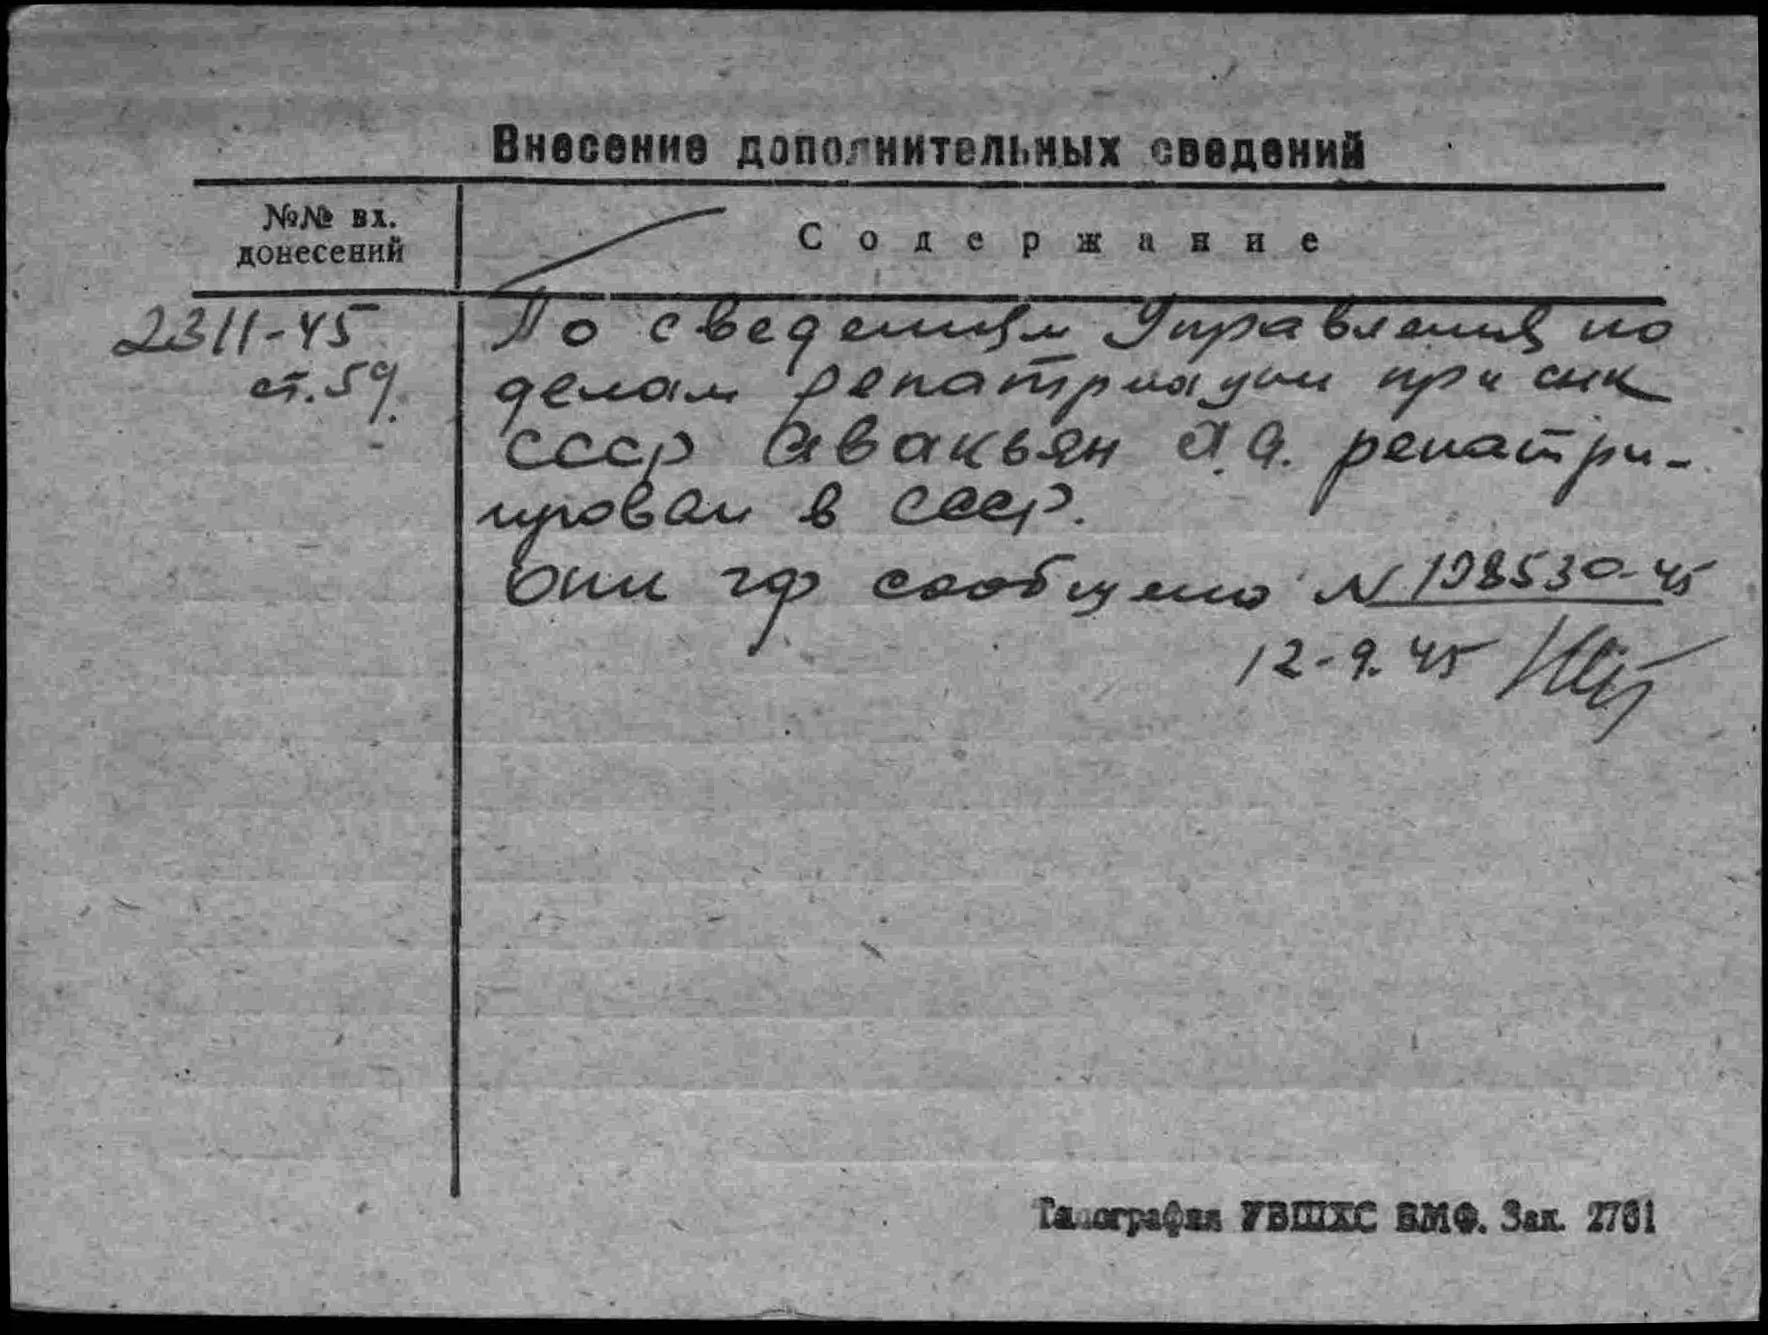 Внесение дополнительных сведений
№№ вх.
донесений
Содержание
2311-45
ст. 59.
По сведениям Управления по
делам репатриации при снк
ссср Авакьян А. А. репатри-
ирован в ссср.
гф сообщено N 198530-45
12-9.45
Типография УВШХС ВМФ. Зак. 2761